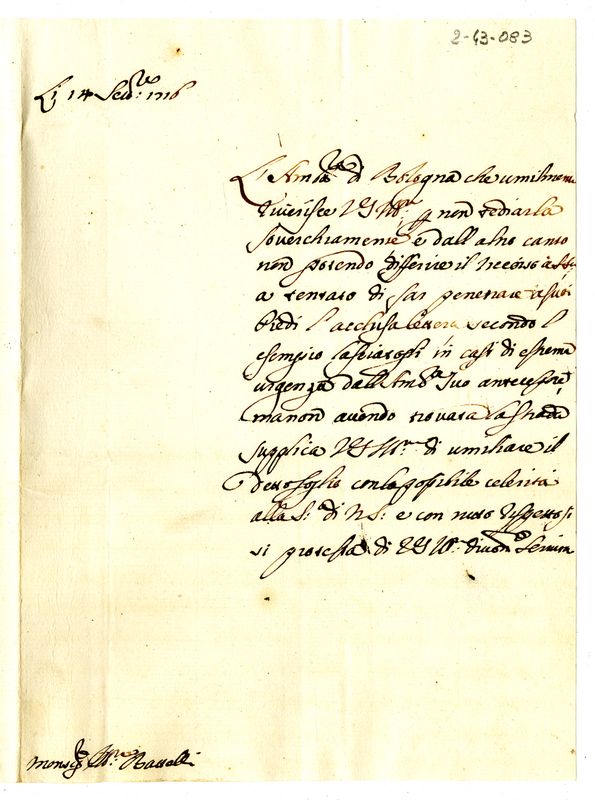 2-43-083
Li 14 Sett.re 1716
L'Amb.re di Bologna che umilmente
riverisce V S Ill.ma p non tediarla
soverchiamente e dall altro canto
non potendo differire il
a tentato di far penetrare a suoi
Piedi l'acclusa lettera secondo l
esempio lasciatogli in casi di estrema
urgenza dall Amb.r suo antecessore
ma non avendo trovata la strada
supplica V S Ill.ma di umiliare il
detto foglio con la possibile celerità
alla S.tà di N S: e con tutto rispetto si
si protesta di V S Ill.ma
Monsig.r Ill.mo